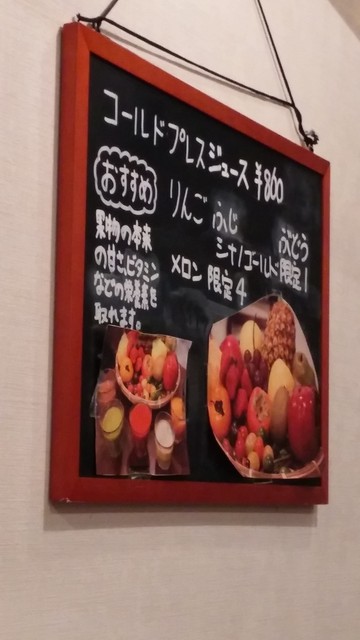 コールドプレスジュース ¥860
おすすめ
果物の本来
の甘さ、ビタミン
などの栄養素を
取れます。
りんご ふじ
シナノゴールド
ぶどう
限定1
メロン 限定4